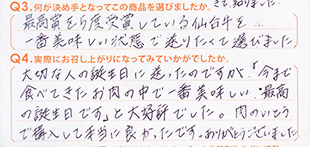 Q3.何が決め手となってこの商品を選びましたか。きて、知りました。
最高賞を5度受賞している仙台牛を
一番美味しい状態で送りたくて選びました
Q4.実際にお召し上がりになってみていかがでしたか。
大切な人の誕生日に送ったのですが、「今まで
食べてきたお肉の中で一番美味しい、最高
の誕生日です」と大好評でした。肉のいとう
で購入して本当に良かったです。ありがとうございました